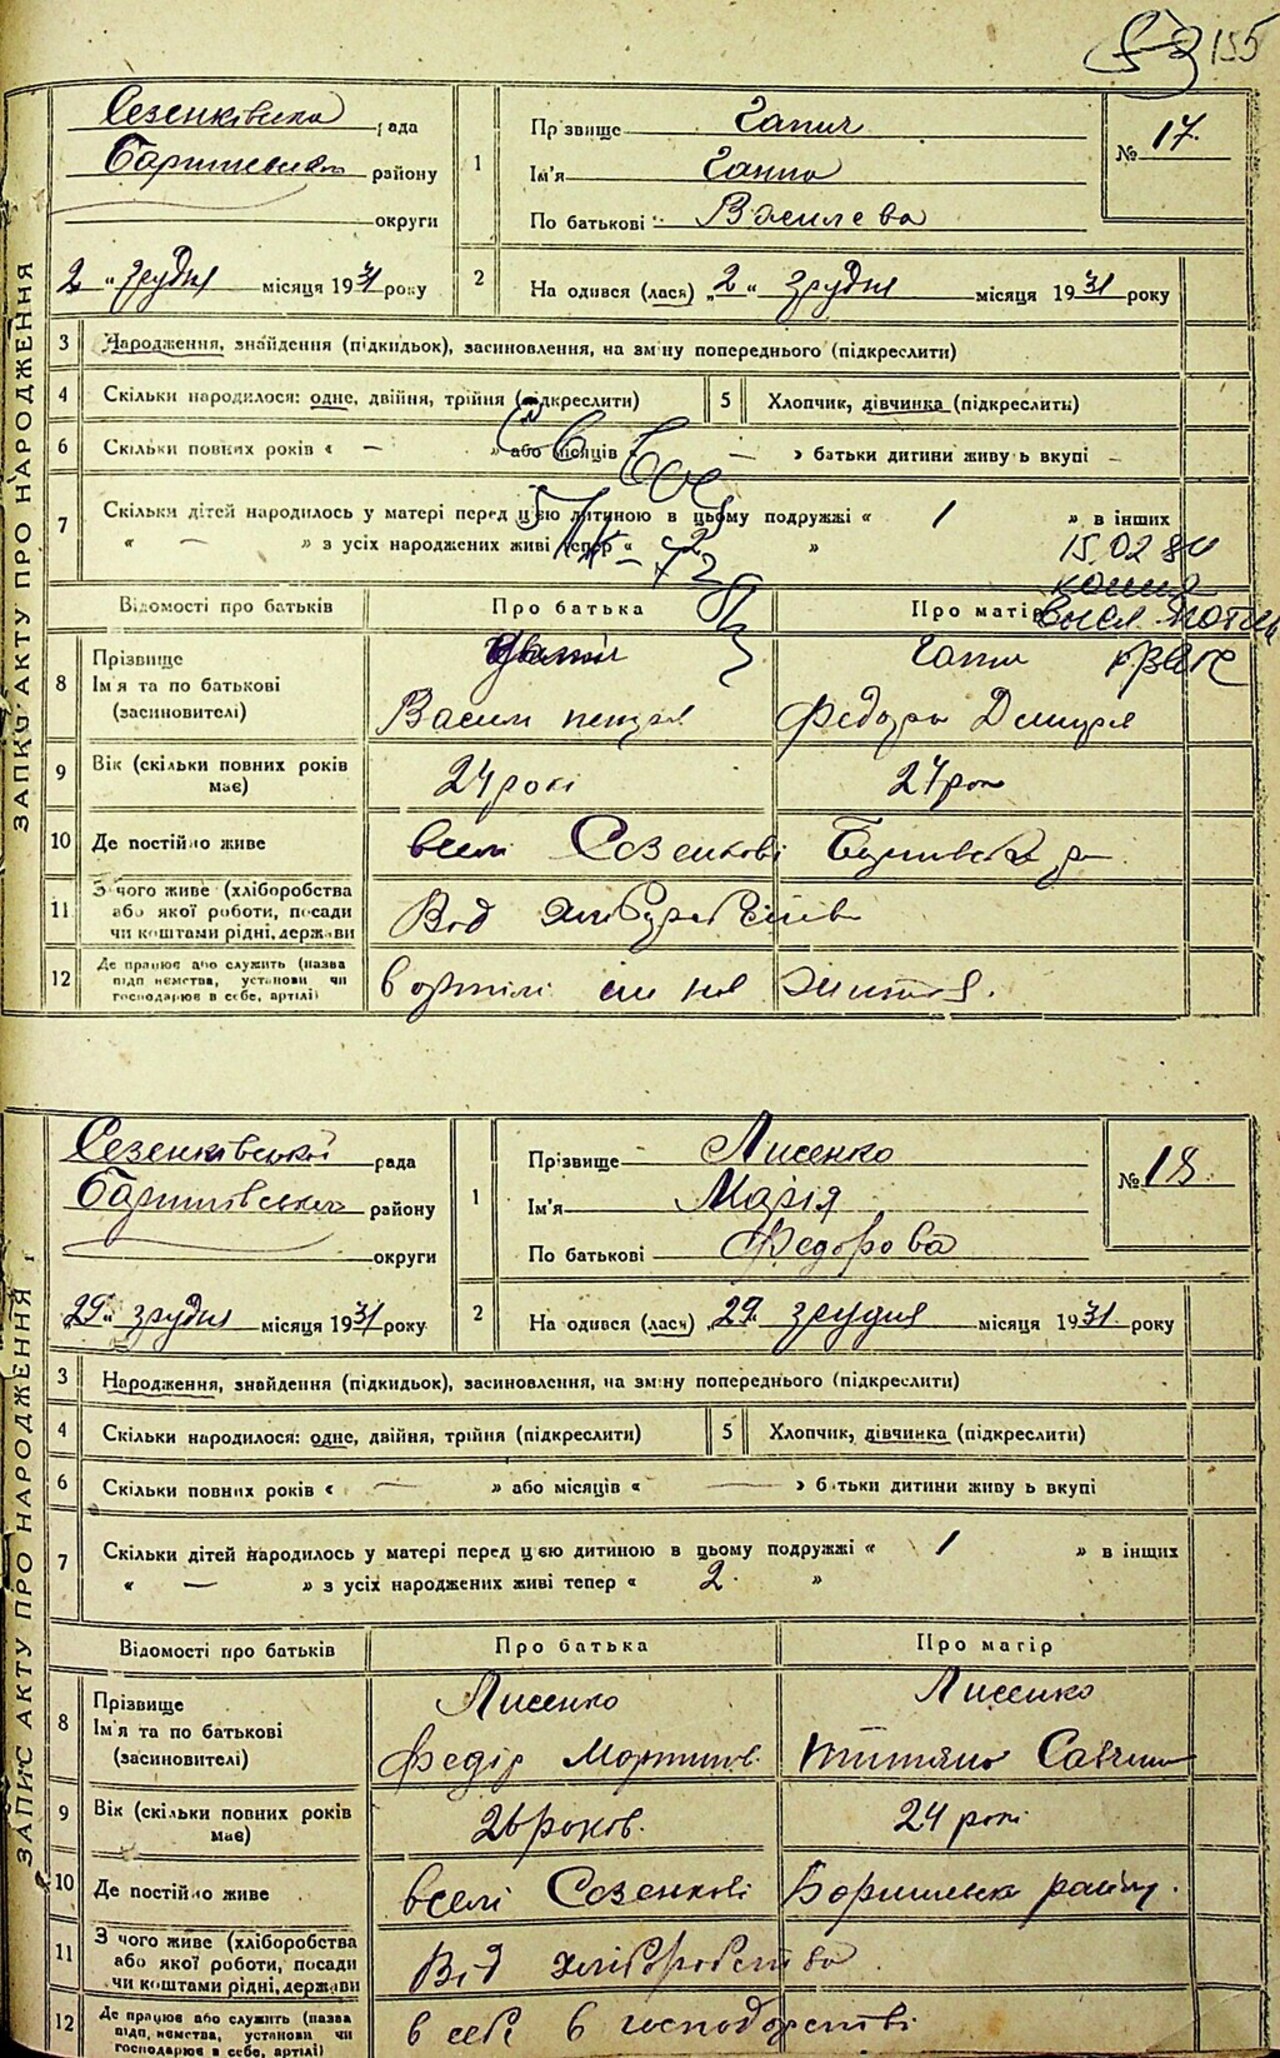 155
ЗАПИС АКТУ ПРО НАРОДЖЕННЯ
Сезенківська рада
району
округи
2 " грудня місяця 1931 року
1
Прізвище Гапич
Ім'я Ганна
По батькові Василева
№ 17.
2
На одився (лася) „2" грудня місяця 1931 року
3
Народження, знайдення (підкидьок), засиновлення, на зміну попереднього (підкреслити)
4
Скільки народилося: одне, двійня, трійня (підкреслити)
5
Хлопчик, дівчинка (підкреслить)
6
Скільки повних років « — » або місяців « — » батьки дитини живуть вкупі —
7
Скільки дітей народилось у матері перед цією дитиною в цьому подружжі « 1 » в інших
« — » з усіх народжених живі тепер « 2 »
15.02 80
копия
Відомості про батьків
Про батька
Про матір
8
Прізвище
Ім'я та по батькові
(засиновителі)
Васил
Федора
9
Вік (скільки повних років
має)
24 рокі
24 рок
10
Де постійно живе
вселі Сезенкові
11
З чого живе (хліборобства
або якої роботи, посади
чи коштами рідні, держави
Від
12
Де працює або служить (назва
підприємства, установи чи
господарює в себе, артілі)
в артілі
ЗАПИС АКТУ ПРО НАРОДЖЕННЯ
Сезенківської рада
Баришівського району
округи
„29" грудня місяця 1931 року
1
Прізвище Лисенко
Ім'я Марія
По батькові Федорова
№ 18.
2
На одився (лася) „29" грудня місяця 1931 року
3
Народження, знайдення (підкидьок), засиновлення, на зміну попереднього (підкреслити)
4
Скільки народилося: одне, двійня, трійня (підкреслити)
5
Хлопчик, дівчинка (підкреслити)
6
Скільки повних років « — » або місяців « — » батьки дитини живуть вкупі
7
Скільки дітей народилось у матері перед цією дитиною в цьому подружжі « 1 » в інщих
« — » з усіх народжених живі тепер « 2. »
Відомості про батьків
Про батька
Про матір
8
Прізвище
Ім'я та по батькові
(засиновителі)
Лисенко
Федір Мартинов.
Лисенко
9
Вік (скільки повних років
має)
26 роков.
24 рокі
10
Де постійно живе
вселі Сезенкові
11
З чого живе (хліборобства
або якої роботи, посади
чи коштами рідні, держави
Від хліборобства
12
Де працює або служить (назва
підприємства, установи чи
господарює в себе, артілі)
в себе в господорстві